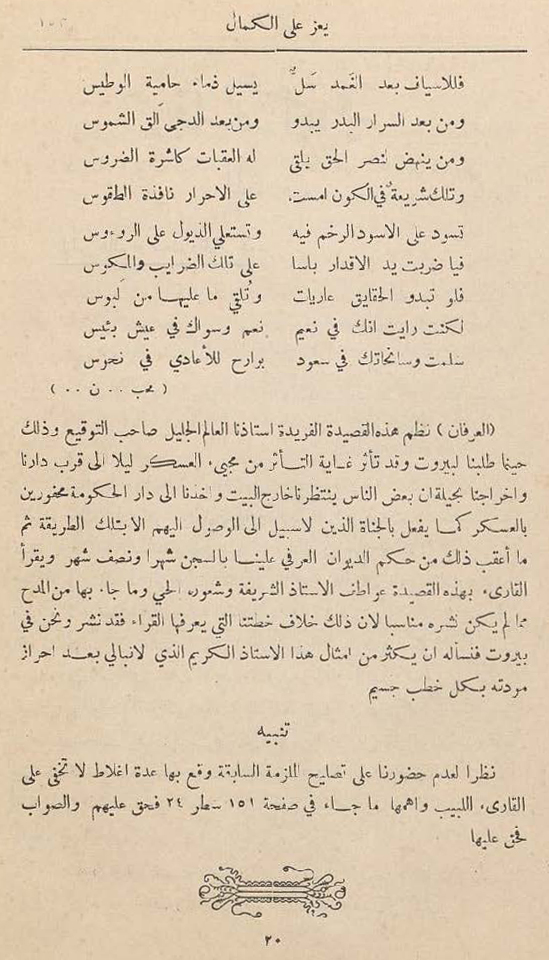 يعز على الكمال
فللاسياف بعد الغمد سَلٌّ يسيل ذماء حامية الوطيس
ومن بعد السرار البدر يبدو ومن بعد الدجى الق الشموس
ومن ينهض لنصر الحق يلقى له العقبات كاشرة الضروس
وتلك شريعة في الكون امست على الاحرار نافذة الطقوس
تسود على الاسود الرخم فيه وتستعلي الذيول على الروءوس
فيا ضربت يد الاقدار باسا على تلك الضرايب والمكوس
فلو تبدو الحقايق عاريات وتُلقي ما عليها من لبوس
لكنت رايت انك في نعيم نعم وسواك في عيش بئيس
سلمت وسانحاتك في سعود بوارح للأعادي في نحوس
( محب . . ن . . )
(العرفان) نظم هذه القصيدة الفريدة استاذنا العالم الجليل صاحب التوقيع وذلك
حينما طلبنا لبيروت وقد تأثر غاية التأثر من مجيء العسكر ليلا الى قرب دارنا
واخراجنا بحيلة ان بعض الناس ينتظرنا خارج البيت واخذنا الى دار الحكومة محفورين
بالعسكر كما يفعل بالجناة الذين لاسبيل الى الوصول اليهم الا بتلك الطريقة ثم
ما أعقب ذلك من حكم الديوان العرفي علينا بالسجن شهرا ونصف شهر ويقرأ
القارىء بهذه القصيدة عواطف الاستاذ الشريفة وشعوره الحي وما جاء بها من المدح
مما لم يكن نشره مناسبا لان ذلك خلاف خطتنا التي يعرفها القراء فقد نشر ونحن في
بيروت فنسأله ان يكثر من امثال هذا الاستاذ الكريم الذي لانبالي بعد احراز
مودته بكل خطب جسيم
تنبيه
نظرا لعدم حضورنا على تصليح الملزمة السابقة وقع بها عدة اغلاط لا تخفى على
القارىء اللبيب واهمها ما جاء في صفحة ١٥١ سطر ٢٤ فحق عليهم والصواب
فحق عليها
٢٠